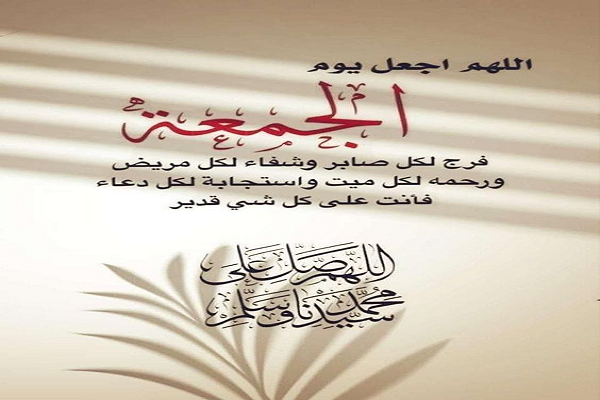 اللهم اجعل يوم
الجمعة
فرج لكل صابر وشفاء لكل مريض
ورحمه لكل ميت واستجابة لكل دعاء
فأنت على كل شي قدير
اللهم صل على
سيدنا محمد وسلم